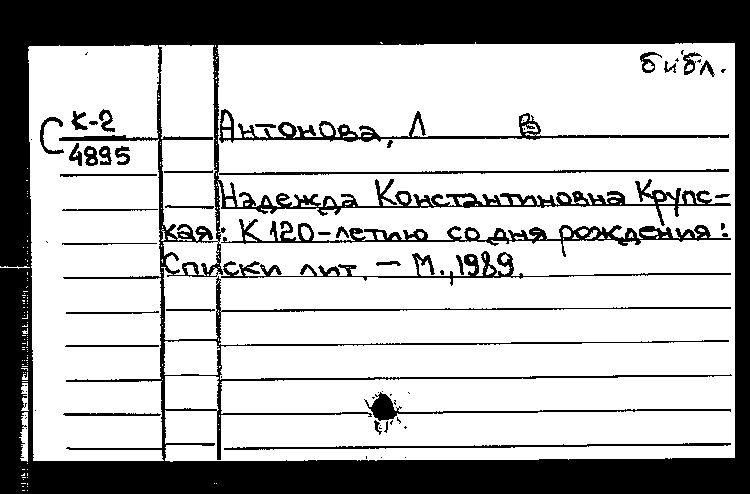 библ.
С К-2
4895
Антонова, Л В
Надежда Константиновна Крупс-
кая: К 120-летию со дня рождения:
Списки лит. — М., 1989.